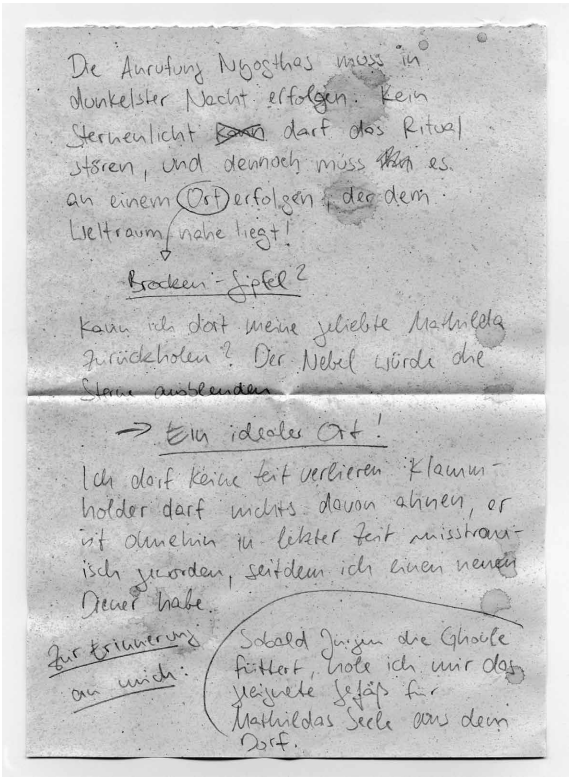 Die Anrufung Nyogthas muss in
dunkelster Nacht erfolgen. Kein
Sternenlicht kann darf das Ritual
stören, und dennoch muss es
an einem Ort erfolgen, der dem
Weltraum nahe liegt!
Brocken-Gipfel?
Kann ich dort meine geliebte Mathilda
zurückholen? Der Nebel würde die
Sterne ausblenden
→ Ein idealer Ort!
Ich darf keine Zeit verlieren Klamm-
holder darf nichts davon ahnen, er
ist ohnehin in letzter Zeit misstrau-
isch geworden, seitdem ich einen neuen
Diener habe.
Zur Erinnerung
an mich:
Sobald Jürgen die Ghoule
füttert, hole ich mir das
geeignete Gefäß für
Mathildas Seele aus dem
Dorf.